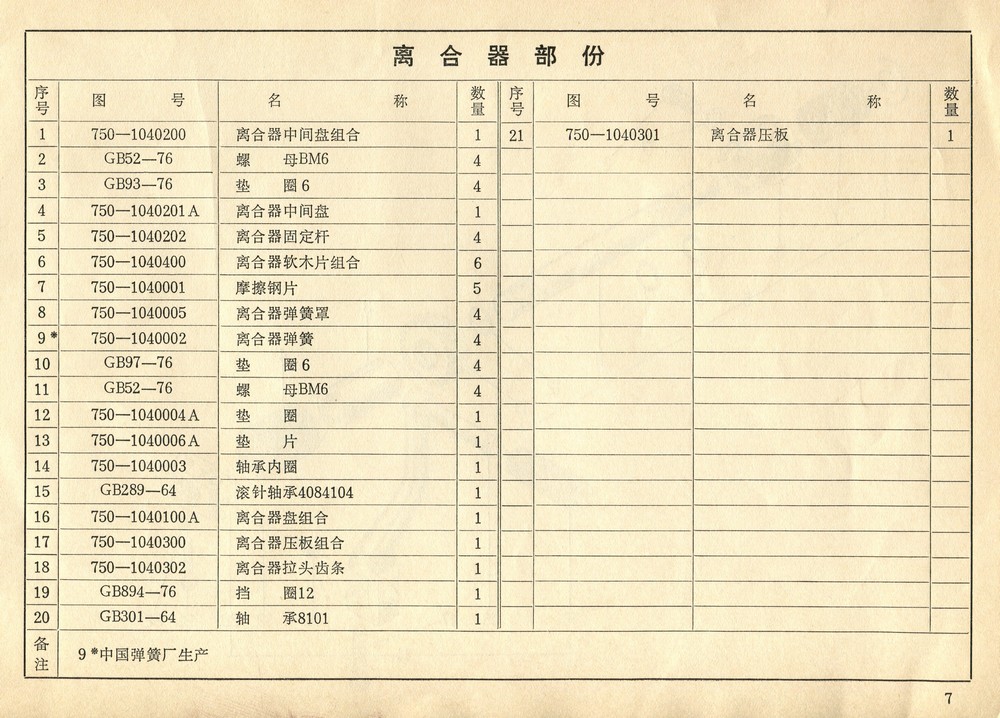 离合器部份
序号 图号 名称 数量 序号 图号 名称 数量
1 750—1040200 离合器中间盘组合 1 21 750—1040301 离合器压板 1
2 GB52—76 螺 母BM6 4
3 GB93—76 垫 圈6 4
4 750—1040201A 离合器中间盘 1
5 750—1040202 离合器固定杆 4
6 750—1040400 离合器软木片组合 6
7 750—1040001 摩擦钢片 5
8 750—1040005 离合器弹簧罩 4
9* 750—1040002 离合器弹簧 4
10 GB97—76 垫 圈6 4
11 GB52—76 螺 母BM6 4
12 750—1040004A 垫 圈 1
13 750—1040006A 垫 片 1
14 750—1040003 轴承内圈 1
15 GB289—64 滚针轴承4084104 1
16 750—1040100A 离合器盘组合 1
17 750—1040300 离合器压板组合 1
18 750—1040302 离合器拉头齿条 1
19 GB894—76 挡 圈12 1
20 GB301—64 轴 承8101 1
备注 9*中国弹簧厂生产
7